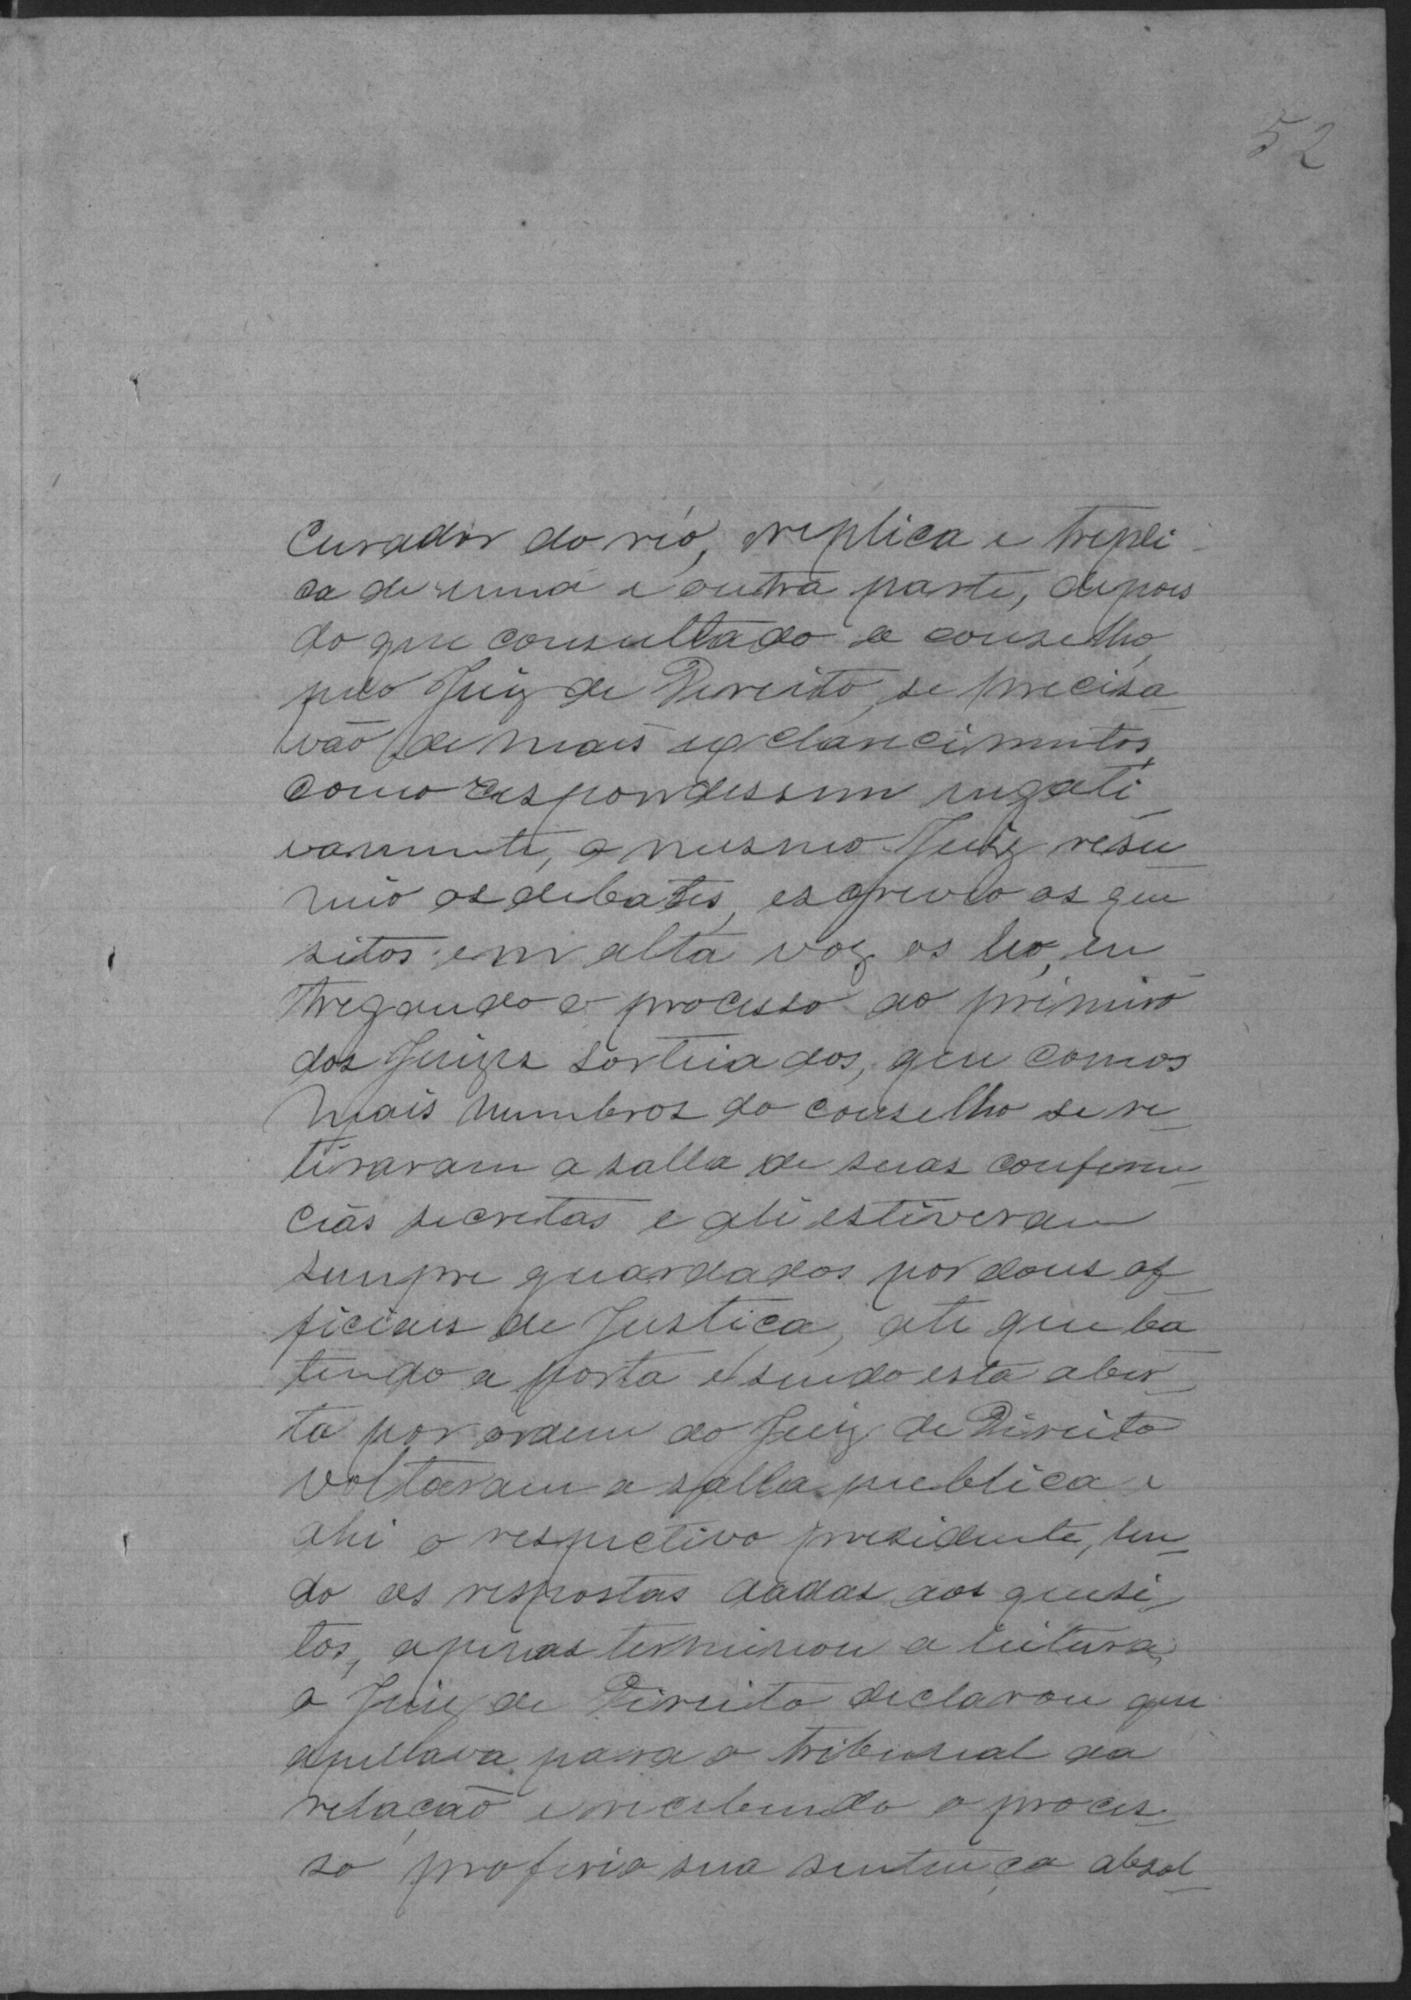 52
Curador do réo, replica e trepli-
ca de uma e outra parte, depois
do que consultado o conselho
pelo Juiz de Direito, se precisa-
vão de mais esclarecimentos,
como respondessem negati-
vamente, o mesmo Juiz resu-
mio os debates, escreveo os que-
sitos em alta voz os leo, en-
tregando o processo ao primeiro
dos Juizes sorteiados, que com os
mais membros do conselho se re-
tiraram a salla de suas conferen-
cias secretas e ali estiveram
sempre guardados por dous of-
ficiaes de Justiça, ate que ba-
tendo a porta e sendo esta aber-
ta por ordem do Juiz de Direito
voltaram a salla publica e
ahi o respectivo presidente, len-
do as respostas dadas aos quesi-
tos, apenas terminou a leitura,
o Juiz de Direito declarou que
apellava para o tribunal da
relação e recebendo o proces-
so proferio sua sentença absol-